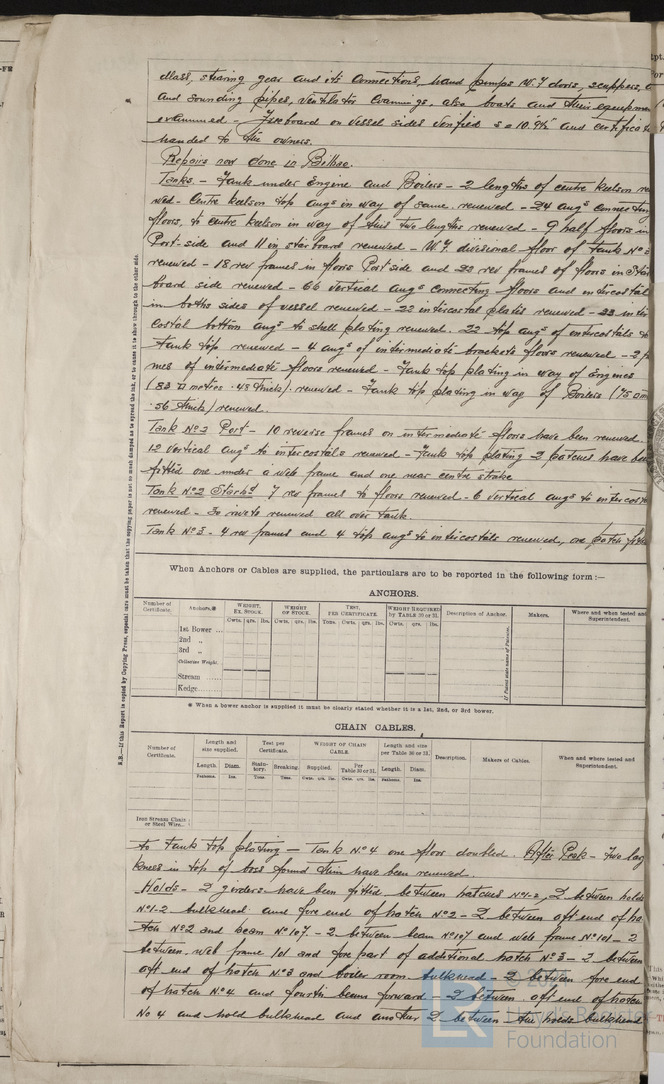 dlass, stearing gear and its connections, hand pumps W.T doors, scuppers, a
and sounding pipes, ventilator coamings, also boats and their equipmen
examined - Freeboard on vessel sides verified and certificate
handed to the owners.
Repairs now done in Bilbao.
Tanks. - Tank under Engine and Boilers - 2 lengths of centre keelson re
wed - Centre keelson top angs in way of same renewed - 24 angs connecting
floors, to centre keelson in way of this two lengths renewed - 9 half floors in
Port-side and 11 in starboard renewed - W.T. divisional floor of tank No 3
renewed - 18 rev frames in floors Port side and 22 rev frames of floors in Star
board side renewed - 66 vertical angs connecting floors and intercostal
in boths sides of vessel renewed - 22 intercostal plates renewed - 22 inter
costal bottom angs to shell plating renewed. 22 top angs of intercostals to
tank top renewed - 4 angs of intermediate brackets floors renewed - 2 f
mes of intermediate floors renewed - Tank top plating in way of Engines
(83 □ metres .48 thick). renewed - Tank top plating in way of Boilers (75 □ m
.56 thick) renewed.
Tank No 2 Port - 10 reverse frames on intermediate floors have been renewed
12 vertical angs to intercostals renewed - Tank top plating 2 patches have been
fitted one under a web frame and one near centre strake
Tank No 2 Starbd 7 rev frames to floors renewed - 6 vertical angs to intercost
renewed - 30 rivets renewed all over tank.
Tank No 3 - 4 rev frames and 4 top angs to intercostals renewed, one patch fitte
N.B.—If this Report is copied by Copying Press, especial care must be taken that the copying paper is not so much damped as to spread the ink, or to cause it to show through to the other side.
When Anchors or Cables are supplied, the particulars are to be reported in the following form :—
ANCHORS.
Number of Certificate. Anchors.* WEIGHT, EX. STOCK. WEIGHT OF STOCK. TEST, PER CERTIFICATE. WEIGHT REQUIRED by TABLE 30 or 31. Description of Anchor. Makers. Where and when tested and Superintendent.
Cwts. qrs. lbs. Cwts. qrs. lbs. Tons. Cwts. qrs. lbs. Cwts. qrs. lbs.
1st Bower ...
2nd „
3rd „
Collective Weight.
Stream ......
Kedge........
If Patent state name of Patentee.
* When a bower anchor is supplied it must be clearly stated whether it is a 1st, 2nd, or 3rd bower.
CHAIN CABLES.
Number of Certificate. Length and size supplied. Test per Certificate. WEIGHT OF CHAIN CABLE. Length and size per Table 30 or 31. Description. Makers of Cables. When and where tested and Superintendent.
Length. Diam. Statutory. Breaking. Supplied. Per Table 30 or 31. Length. Diam.
Fathoms. Ins. Tons. Tons. Cwts. qrs. lbs. Cwts. qrs. lbs. Fathoms. Ins.
Iron Stream Chain or Steel Wire..
to tank top plating — Tank No 4 one floor doubled. After Peak - Two lag
knees in top of boss found thin have been renewed.
Holds - 2 girders have been fitted between hatches No 1-2, 2 between holds
No 1-2 bulkhead and fore end of hatch No 2 - 2 between aft end of ha
tch No 2 and beam No 107. - 2 between beam No 107 and web frame No 101 - 2
between web frame 101 and fore part of additional hatch No 3 - 2 between
aft end of hatch No 3 and boiler room bulkhead - 2 between fore end
of hatch No 4 and fourth beam forward - 2 between aft end of hatch
No 4 and hold bulkhead and another 2 between the holds bulkhead
Lloyd's Register
Foundation